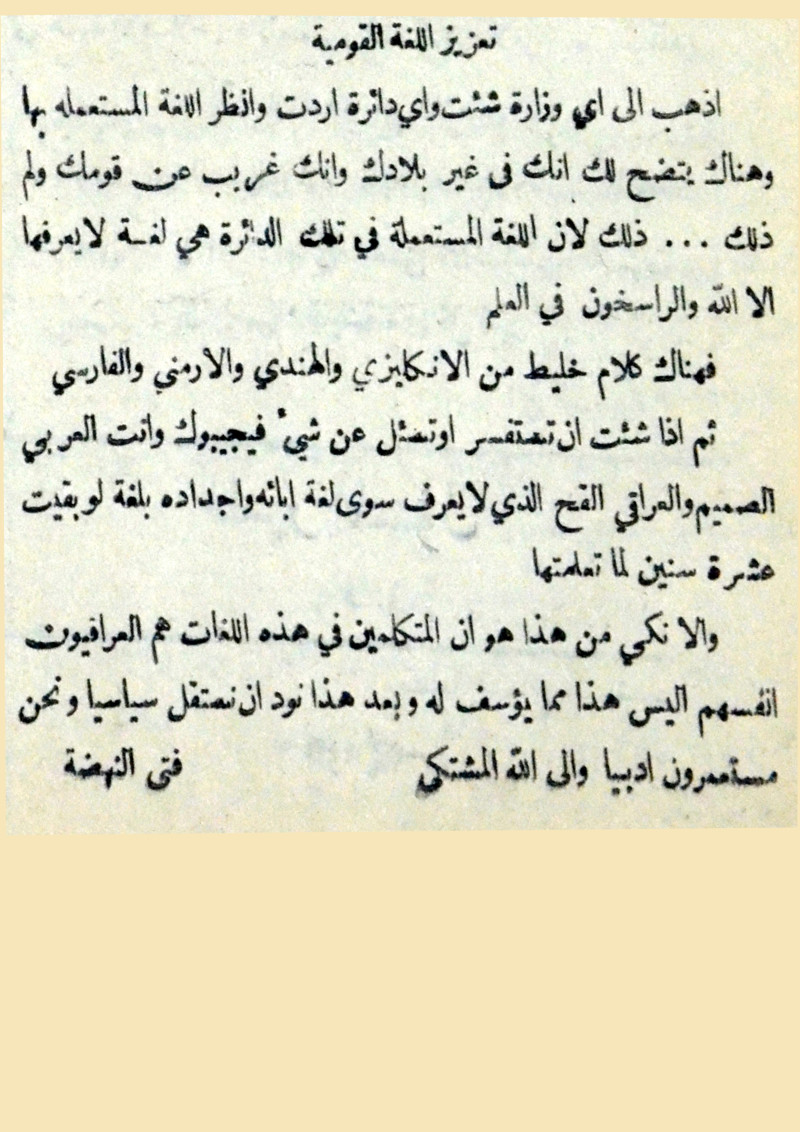 تعزيز اللغة القومية
اذهب الى اي وزارة شئت واي دائرة اردت وانظر اللغة المستعمله بها
وهناك يتضح لك انك فى غير بلادك وانك غريب عن قومك ولم
ذلك ... ذلك لان اللغة المستعملة في تلك الدائرة هي لغة لا يعرفها
الا الله والراسخون في العلم
فهناك كلام خليط من الانكليزي والهندي والارمني والفارسي
ثم اذا شئت ان تستفسر او تسئل عن شيء فيجيبوك وانت العربي
الصميم والعراقي القح الذي لا يعرف سوى لغة ابائه واجداده بلغة لو بقيت
عشرة سنين لما تعلمتها
والا نكى من هذا هو ان المتكلمين في هذه اللغات هم العراقيون
انفسهم اليس هذا مما يؤسف له وبعد هذا نود ان نستقل سياسيا ونحن
مستعمرون ادبيا والى الله المشتكى فتى النهضة